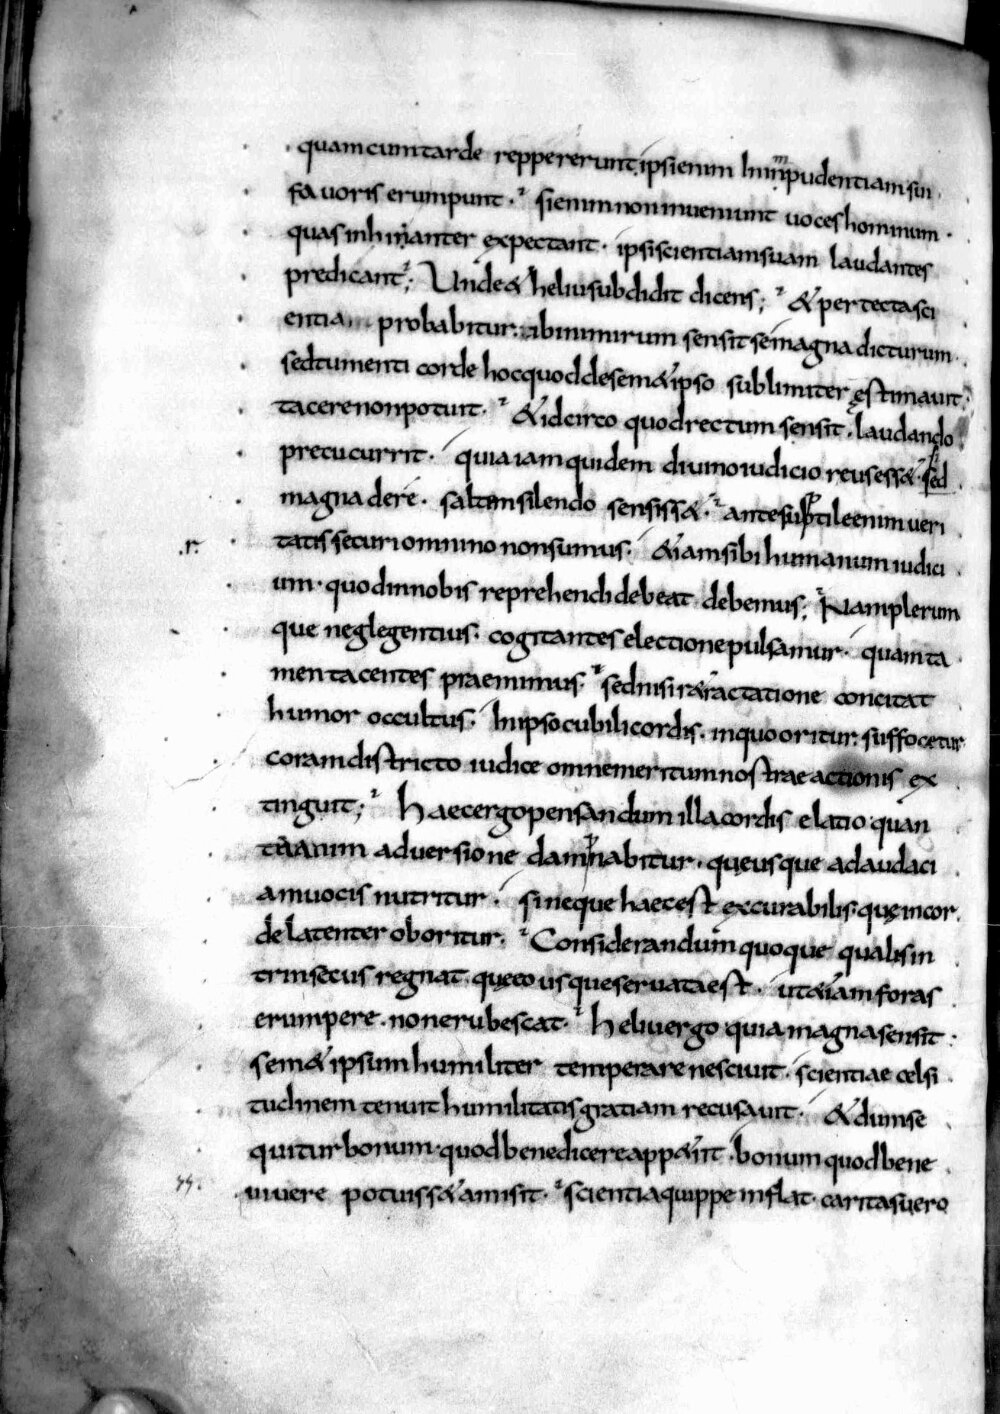 quam cum tarde reppererunt ipsi enim In inpudentiam sui
favoris erumpunt. si enim non inveniunt voces hominum.
quas inhinanter expectant. ipsi scientiam suam laudantes
predicant; Unde & heliu subdidit dicens; & pertecta sci
entia probabitur. ibi nimirum sensit se magna dicturum.
sed tumenti corde hoc quod de sem&ipso sublimiter ęstimavit;
tacere non potuit. & idcirco quod rectum sensit. laudando
precucurrit. quia iam quidem divino iudicio reus ess& sed
magna dere. saltim silendo sensiss&. ante subtile enim veri
tatis securi omnino non sumus. & iam sibi humanum iudici
um. quod in nobis reprehendi debeat debemus; Nam plerum
que neglegentius. cogitantes electione pulsamur. quam ta
men tacentes praemimus. sed nisi r&ractatione concitat
humor occultus. In ipso cubili cordis. in quo oritur. suffocetur
coram districto iudice omne meritum nostrae actionis ex
tinguit; haec ergo pensandum illa cordis elatio quan
ta anim adversione damnabitur. quęusque ad audaci
am vocis nutritur. si neque haec est excurabilis. quę in cor
de latenter oboritur. Considerandum quoque qualis in
trinsecus regnat quęeo usque servata est. ut &iam foras
erumpere. non erubescat. heliu ergo quia magna sensit.
sem& ipsum humiliter temperare nescivit. scientiae celsi
tudinem tenuit humilitatis gratiam recusavit. & dum se
quitur bonum. quod bene dicere app&iit. bonum quod bene
vivere potuiss& amisit. scientia quippe inflat. caritas vero